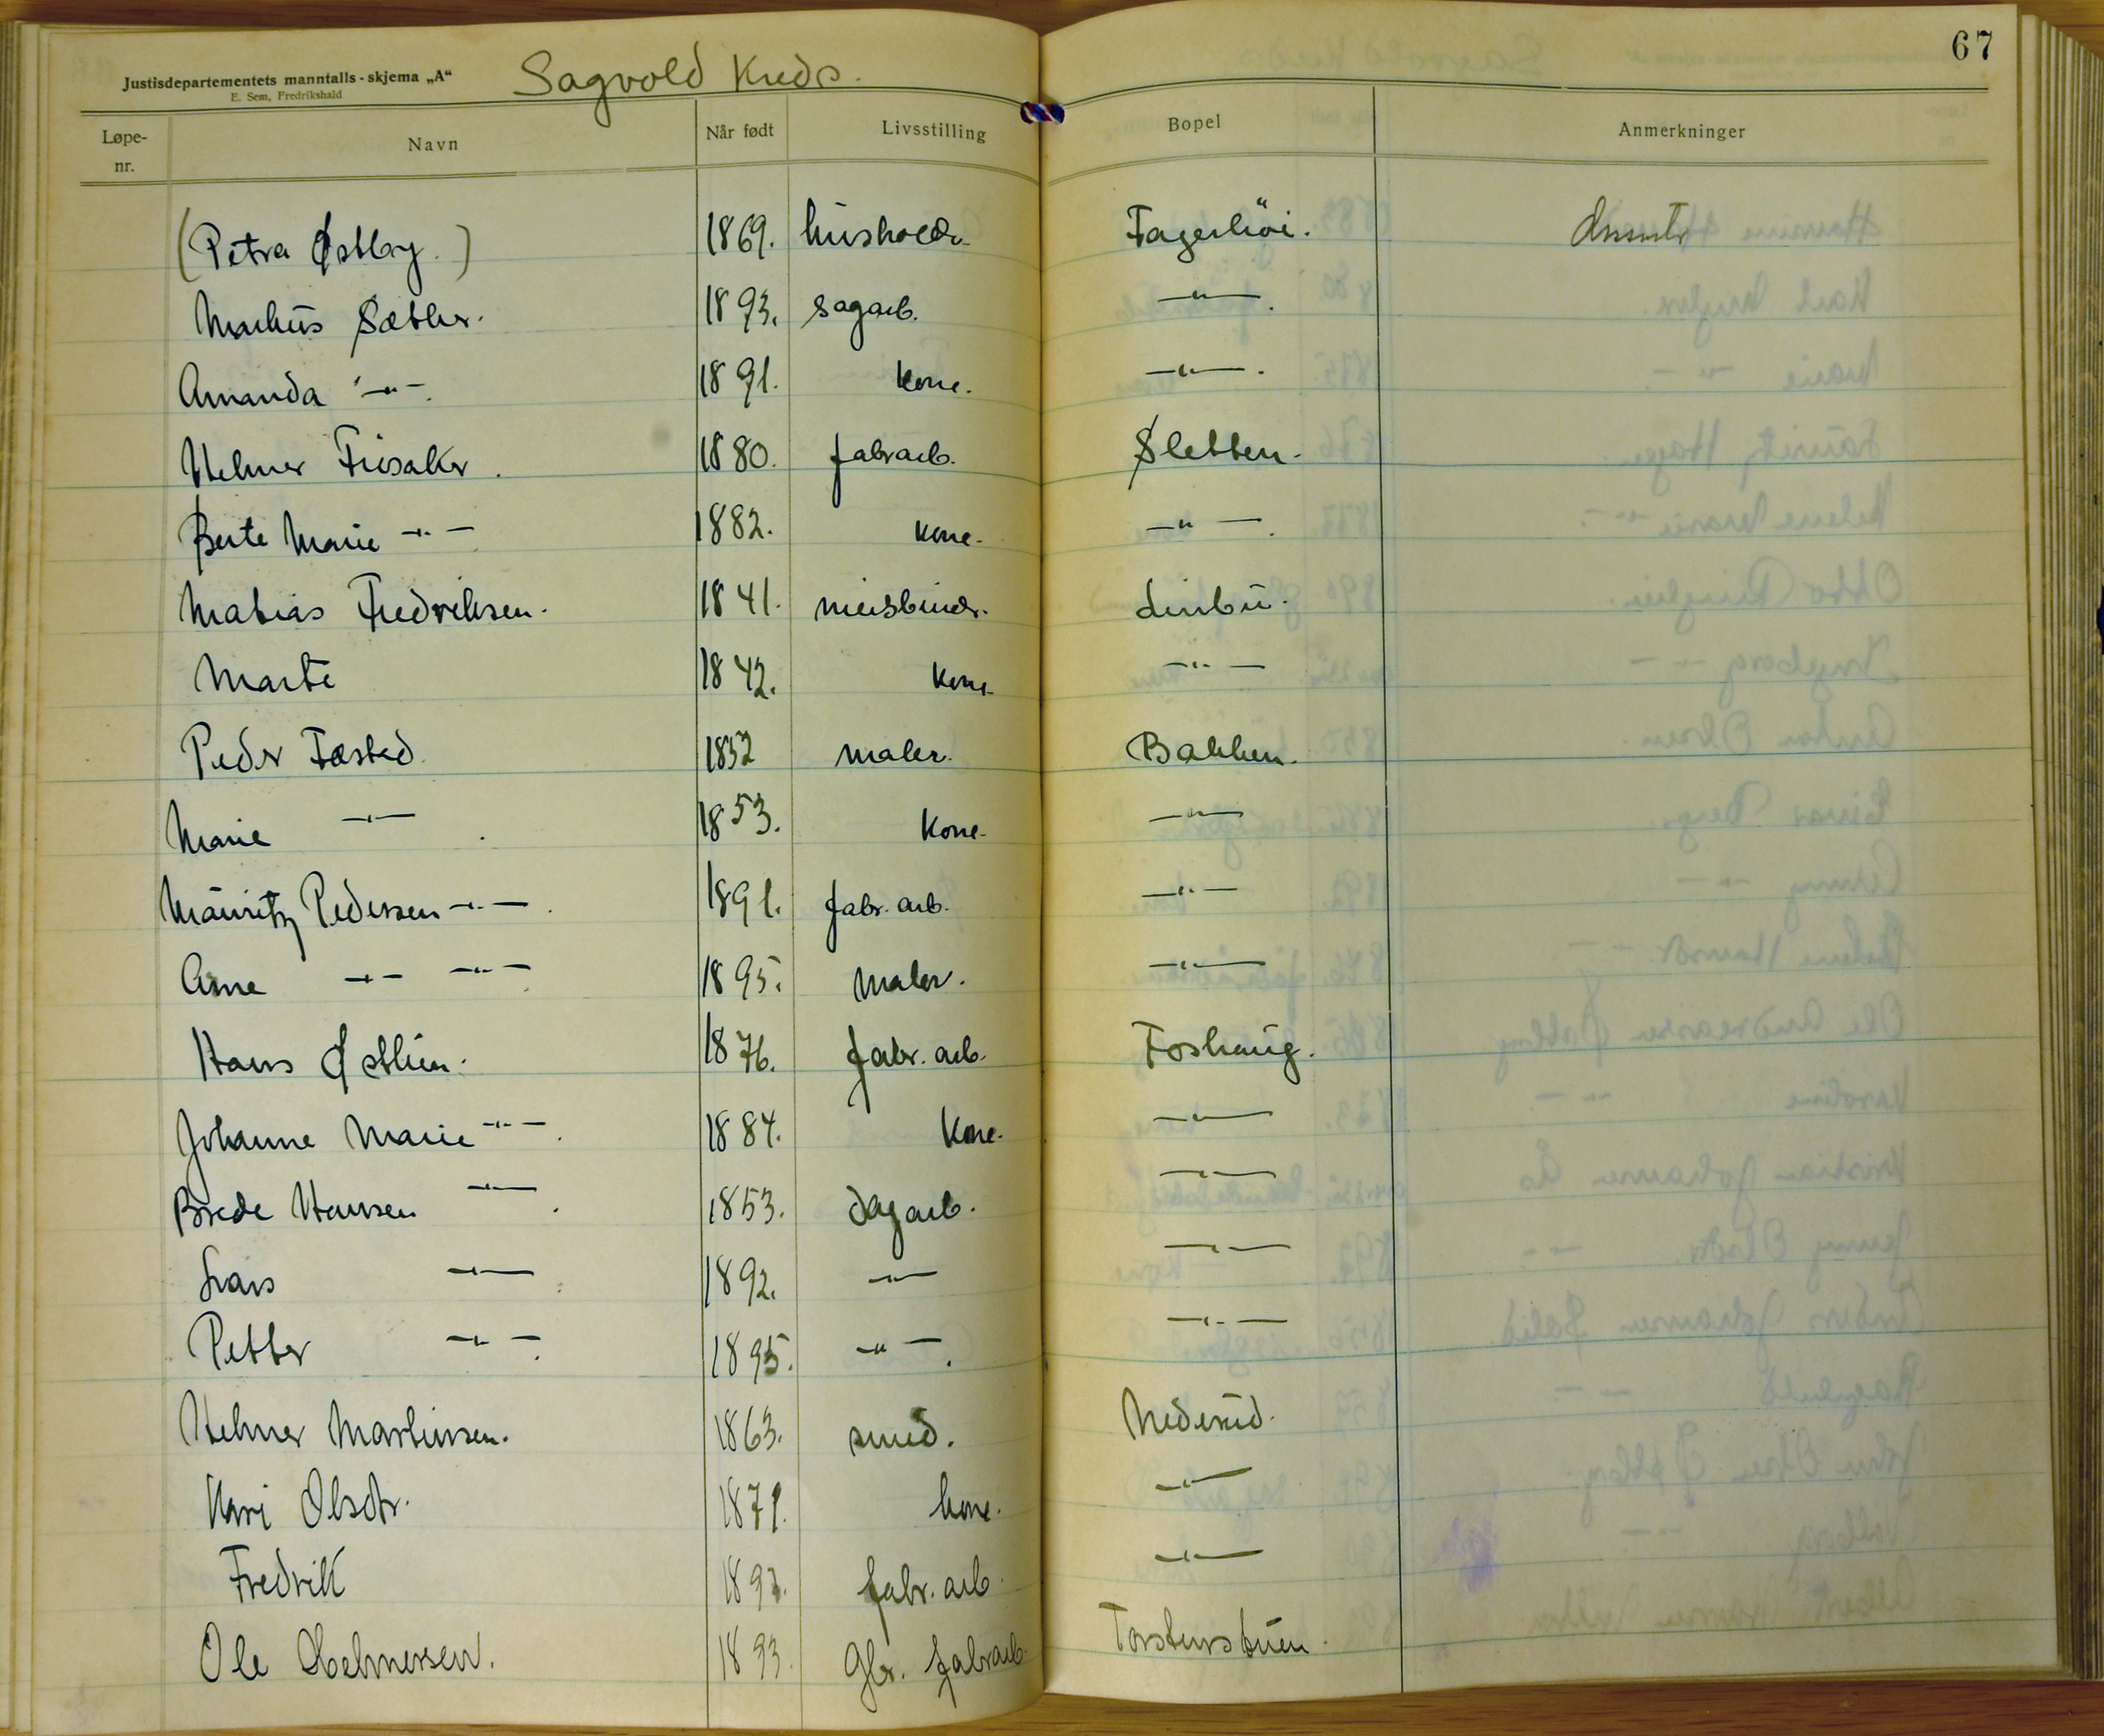 67
Justisdepartementets manntalls-skjema „A“ Sagvold Kreds.
E. Sem, Fredrikshald
Løpe-nr. Navn Når født Livsstilling Bopel Anmerkninger
(Petra Østby.) 1869. husholdr. Fagerhöi.
Markus Sæther. 1893. sagarb. —"—.
Amanda —"—. 1891. kone. —"—.
Helmer Fusaker. 1880. fabrarb. Sletten.
Berte Marie —"— 1882. kone. —"—.
Matias Fredriksen. 1841. meisbindr. Linbu.
Marte 1842. kone. —"—
Peder Fæsted. 1852 maler. Bakken.
Marie —"—. 1853. kone. —"—
Mauritz Pedersen —"—. 1891. fabr. arb. —"—
Arne —"— —"—. 1895. maler. —"—
Hans Østlien. 1876. fabr. arb. Foshaug.
Johanne Marie —"—. 1884. Kone. —"—
Brede Hansen —"—. 1853. dagarb. —"—
Lars —"—. 1892. —"— —"—
Petter —"—. 1895. —"—. —"—
Helmer Martinsen. 1863. smed. Nederud.
Kari Olsdtr. 1871. kone. —"—
Fredrik 1893. fabr. arb. —"—
Ole Helmersen. 1893. Gbr. fabrarb. Torstenstuen.